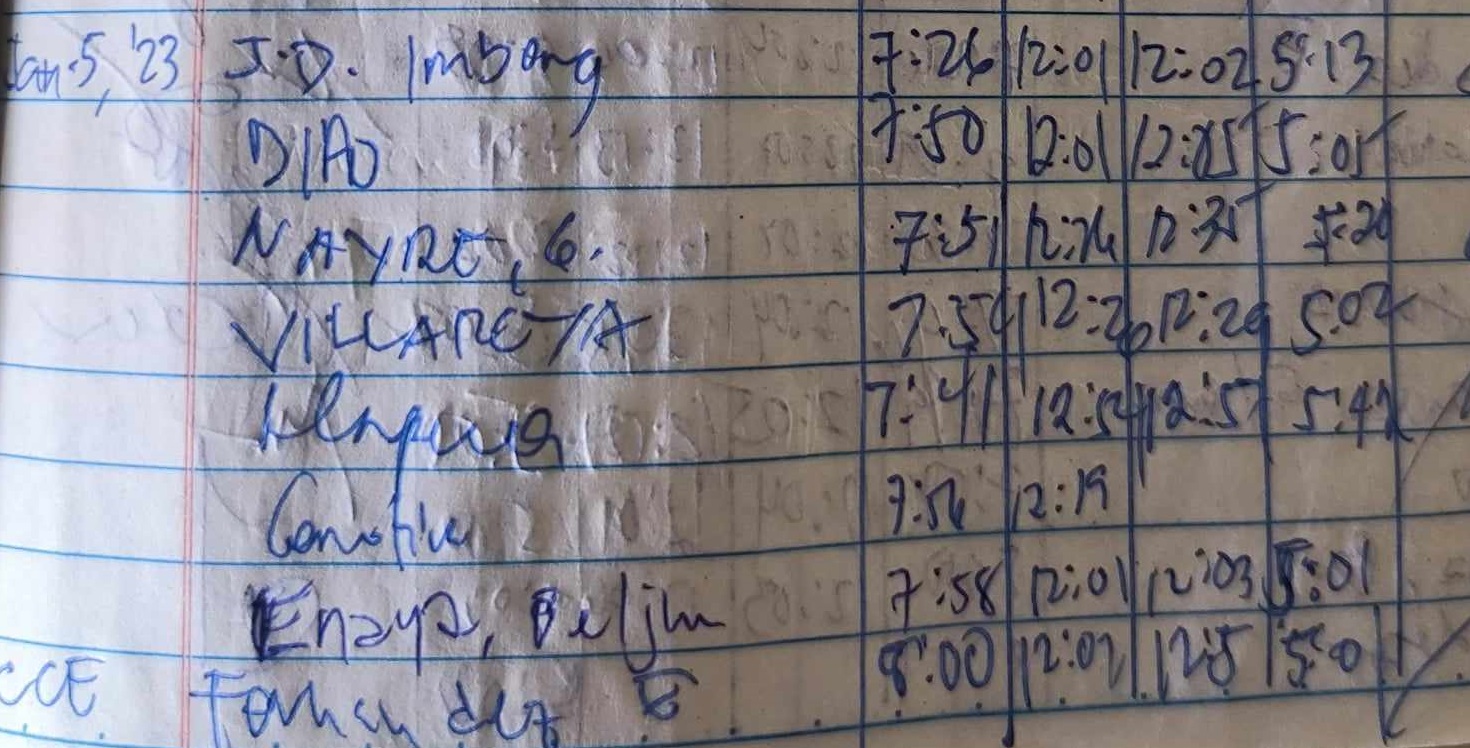 Jan. 5, '23 J.D. Imbong 7:26 12:01 12:02 5:13
DIAO 7:50 12:01 12:05 5:05
NAYRE, G. 7:51 12:26 12:35 5:20
VILLARETA 7:54 12:26 12:29 5:02
7:41 12:54 12:57 5:42
7:56 12:19
7:58 12:01 12:03 5:01
CCE E 8:00 12:02 12:5